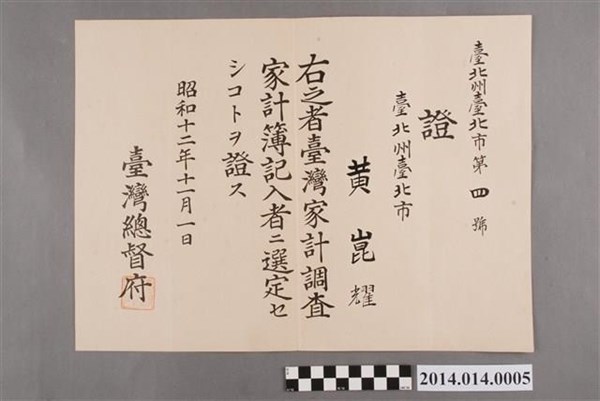 臺北州臺北市第四號
證
臺北州臺北市
黃崑耀
右之者臺灣家計調査
家計簿記入者ニ選定セ
シコトヲ證ス
昭和十二年十一月一日
臺灣總督府
2014.014.0005